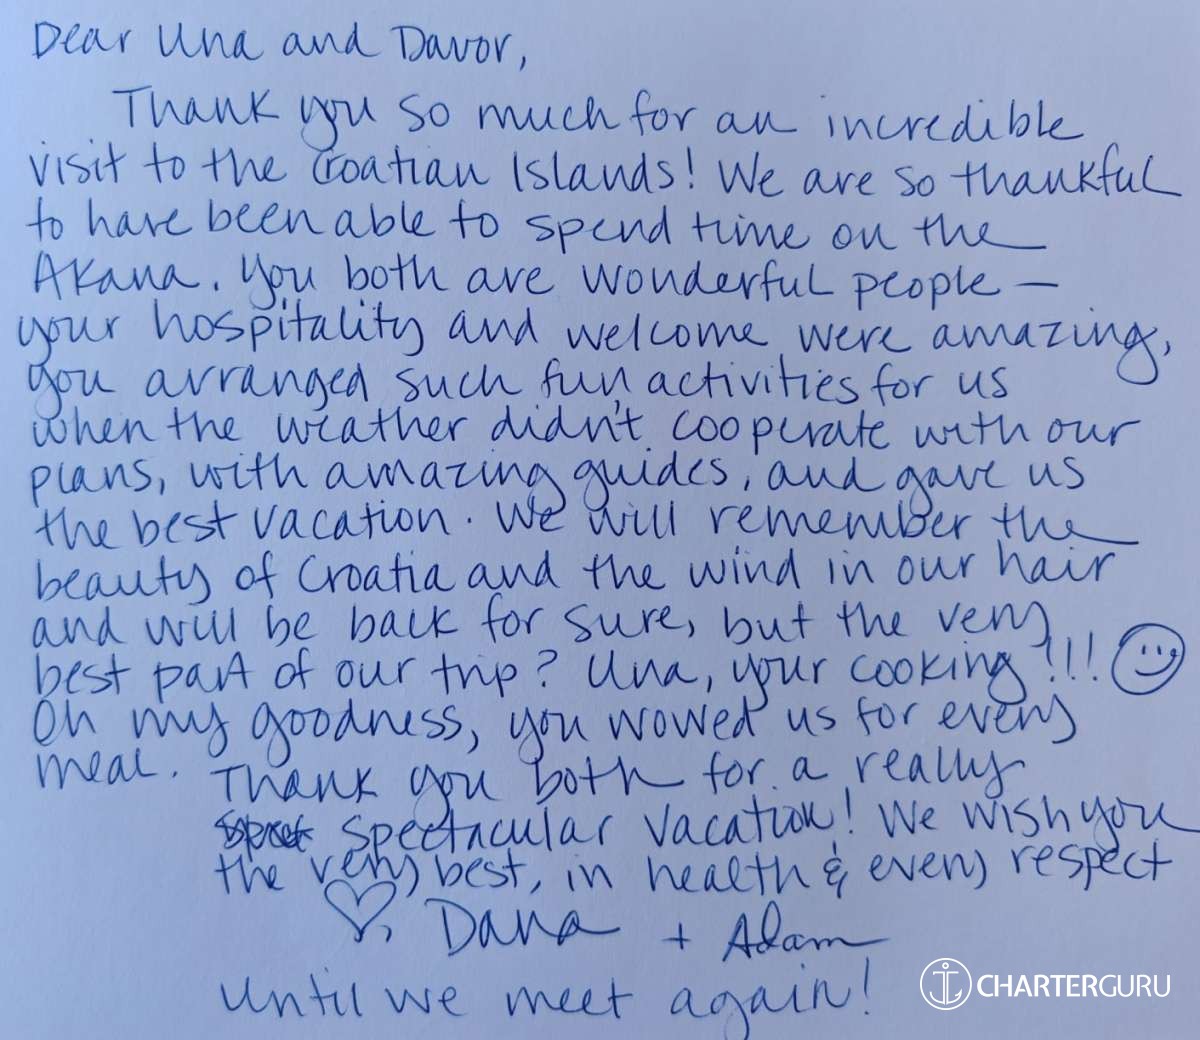 Dear Una and Davor,
Thank you so much for an incredible
visit to the Croatian Islands! We are so thankful
to have been able to spend time on the
Akana. You both are wonderful people —
your hospitality and welcome were amazing,
you arranged such fun activities for us
when the weather didn't cooperate with our
plans, with amazing guides, and gave us
the best vacation. We will remember the
beauty of Croatia and the wind in our hair
and will be back for sure, but the very
best part of our trip? Una, your cooking!!!
Oh my goodness, you wowed us for every
meal. Thank you both for a really
spectacular vacation! We wish you
the very best, in health & every respect
♡, Dana + Adam
Until we meet again!
CHARTERGURU